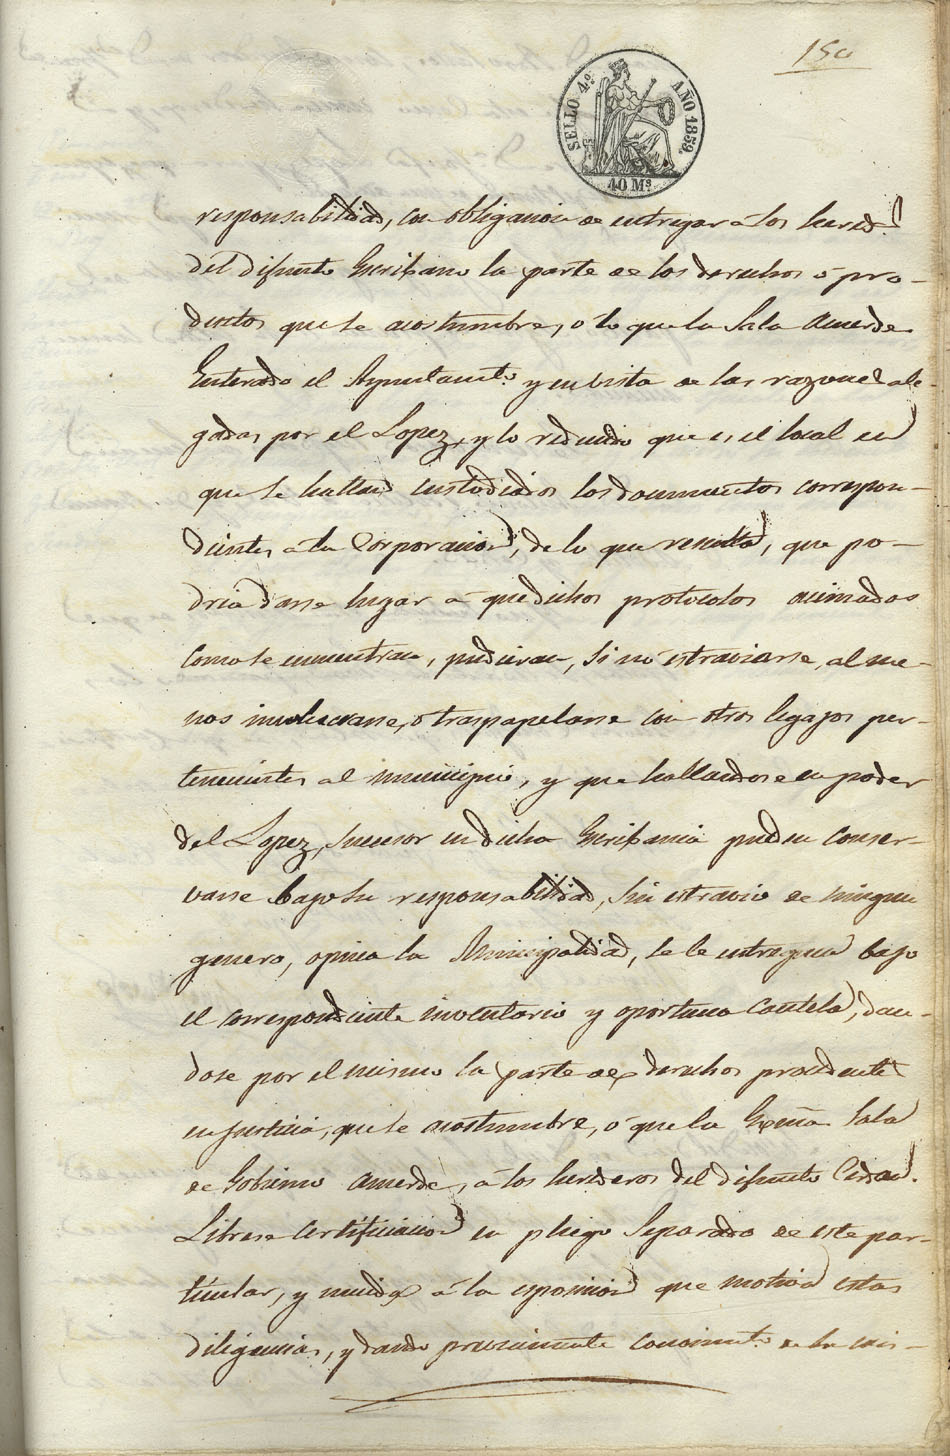 150
SELLO 4º AÑO 1859.
40 Ms
responsabilidad, con obligacion de entregar á los hereds.
del difunto Escribano la parte de los derechos ó pro-
ductos que se acostumbre, ó lo que la Sala Acuerde.
Enterado el Ayuntamto. y en vista de las razones ale-
gadas por el Lopez, y lo reducido que es el local en
que se hallan custodiados los documentos correspon-
dientes á la Corporacion, de lo que resulta, que po-
dria darse lugar á que dichos protocolos acinados
como se encuentran, pudieran, si no estraviarse, al me-
nos involucrarse, ó traspapelarse con otros legajos per-
tenecientes al municipio, y que hallandose en poder
del Lopez, sucesor en dicha Escribania pueden conser-
varse bajo su responsabilidad, sin estravio de ningun
genero, opina la Municipalidad, se le entreguen bajo
el correspondiente inventario y oportuna cautela, dan-
dose por el mismo la parte de derechos procedentes
en justicia, que se acostumbre, ó que la Excma Sala
de Gobierno Acuerde, á los herederos del difunto Cerdan.
Librese Certificacion en pliego Separado de este par-
ticular, y unida á la esposicion que motiva estas
diligencias, y dando previamente conocimto. de la mis-